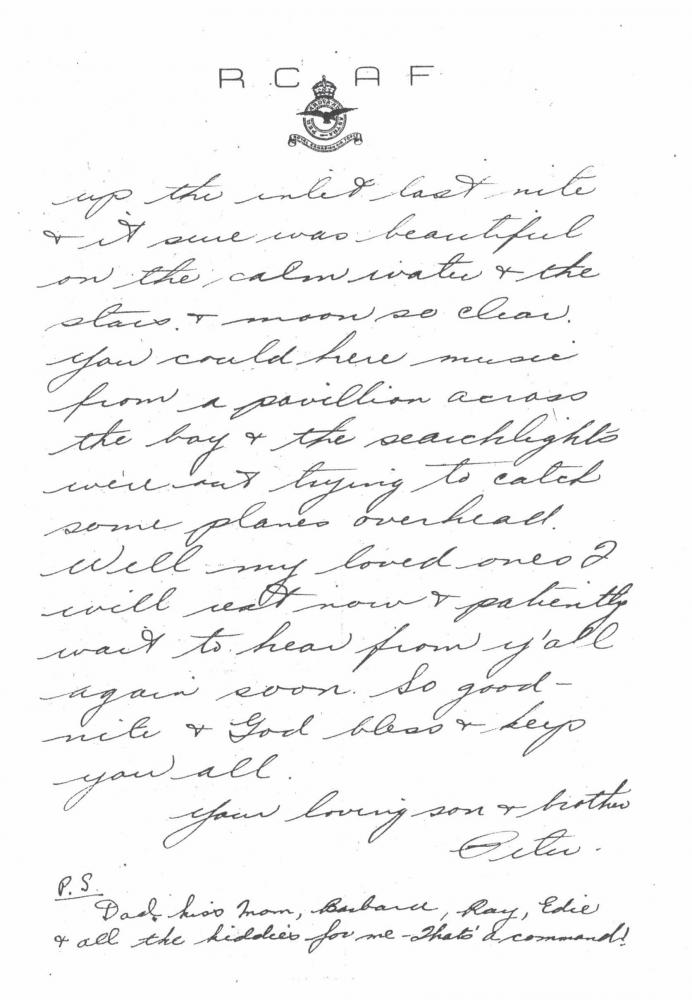 R C A F
PER ARDUA AD ASTRA
ROYAL CANADIAN AIR FORCE
up the inlet last nite
& it sure was beautiful
on the calm water & the
stars & moon so clear.
You could here music
from a pavillion across
the bay & the searchlights
were out trying to catch
some planes overhead.
Well my loved ones I
will rest now & patiently
wait to hear from y'all
again soon. So good-
nite & God bless & keep
you all.
Your loving son & brother
Peter.
P.S.
Dad, kiss Mom, Barbara, Ray, Edie
& all the kiddies for me - That's a command!